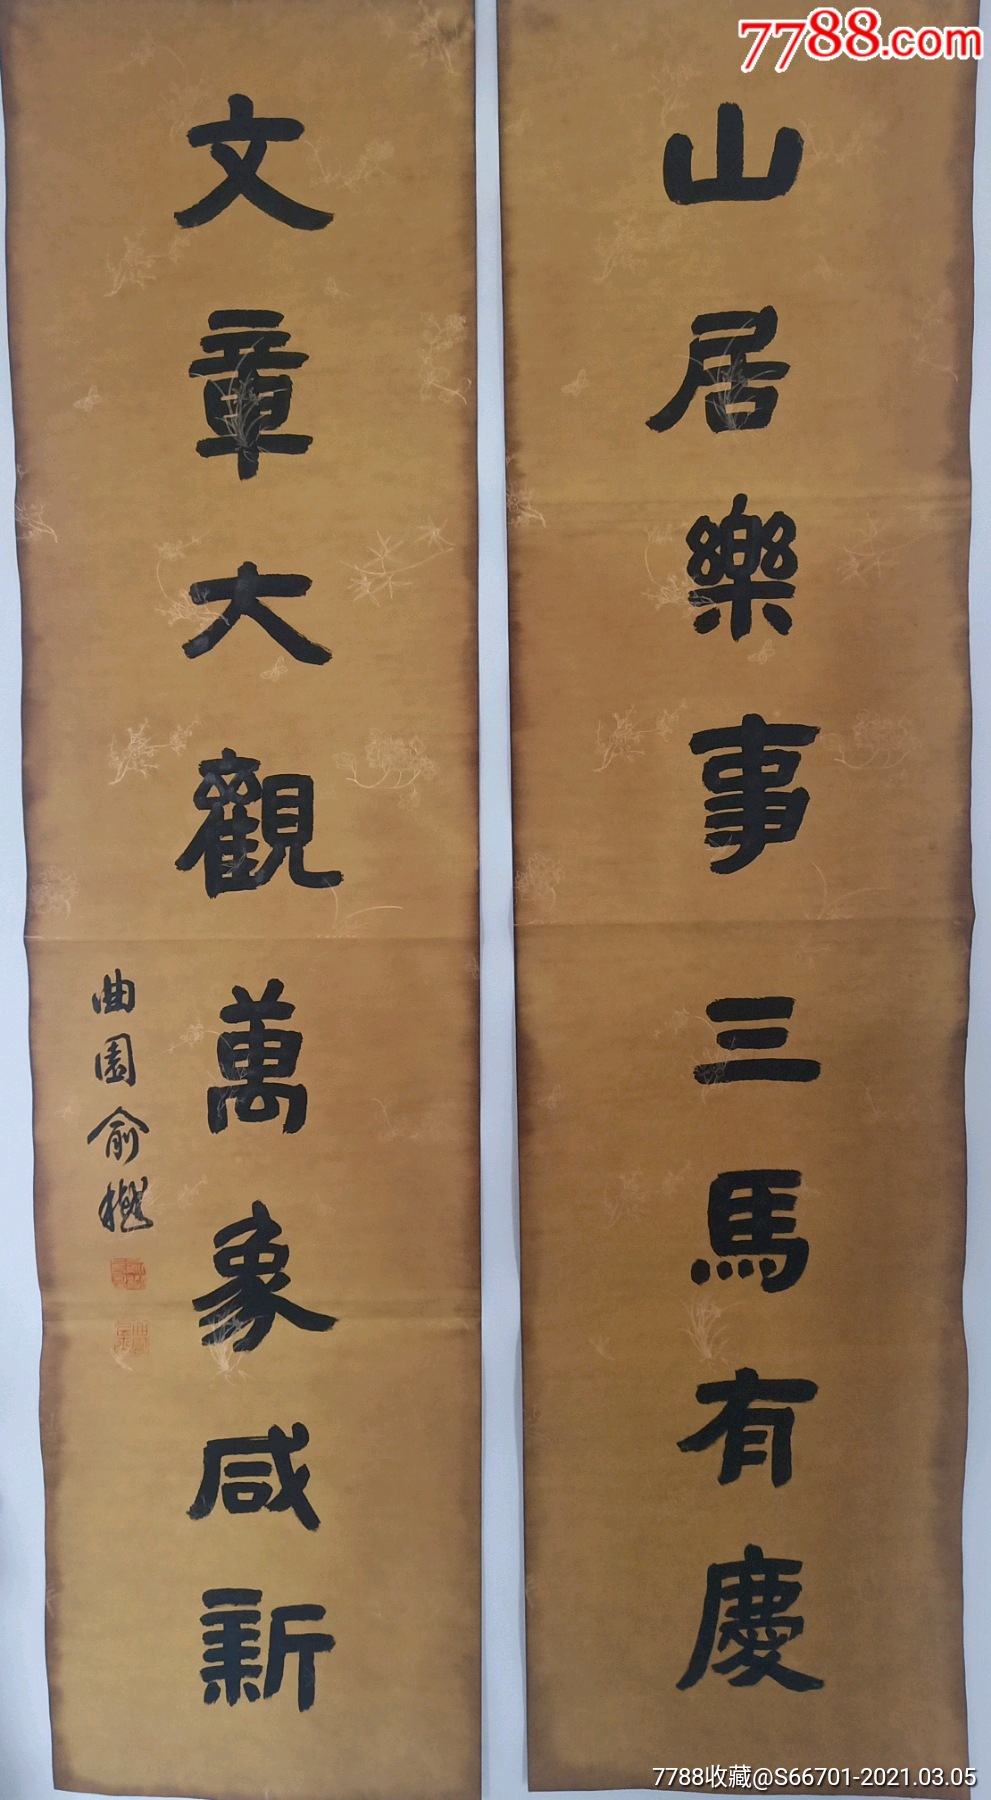 7788.com
山居樂事三馬有慶
文章大觀萬象咸新
曲園俞樾
7788收藏@S66701-2021.03.05